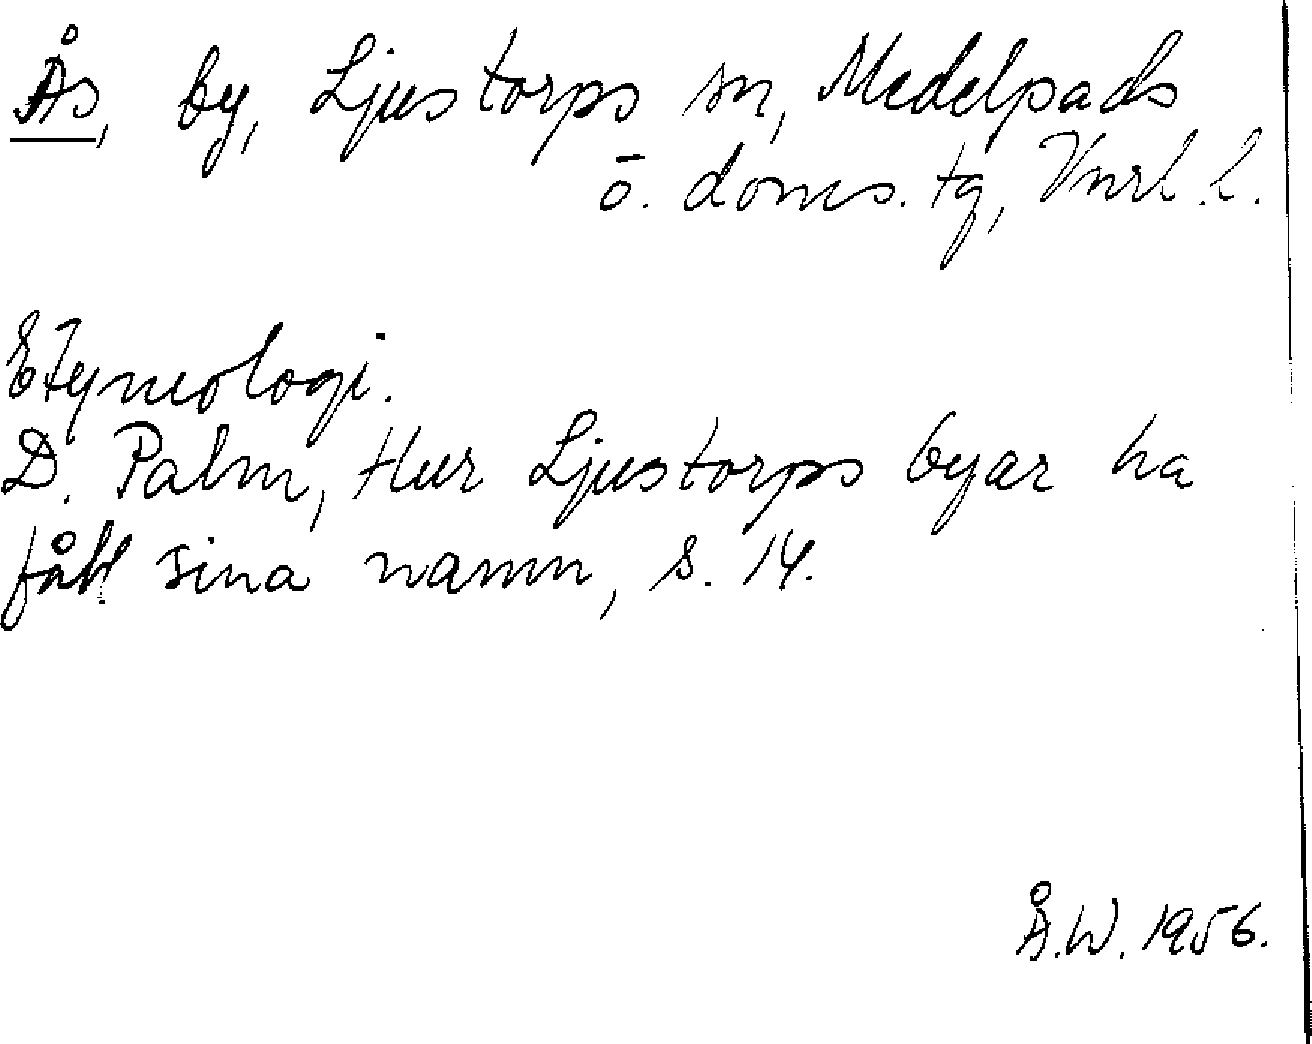 Ås, by, Ljustorps sn, Medelpads
ö. doms. tg, Vnrl. l.
Etymologi.
D. Palm, Hur Ljustorps byar ha
fått sina namn, s. 14.
Å.W. 1956.